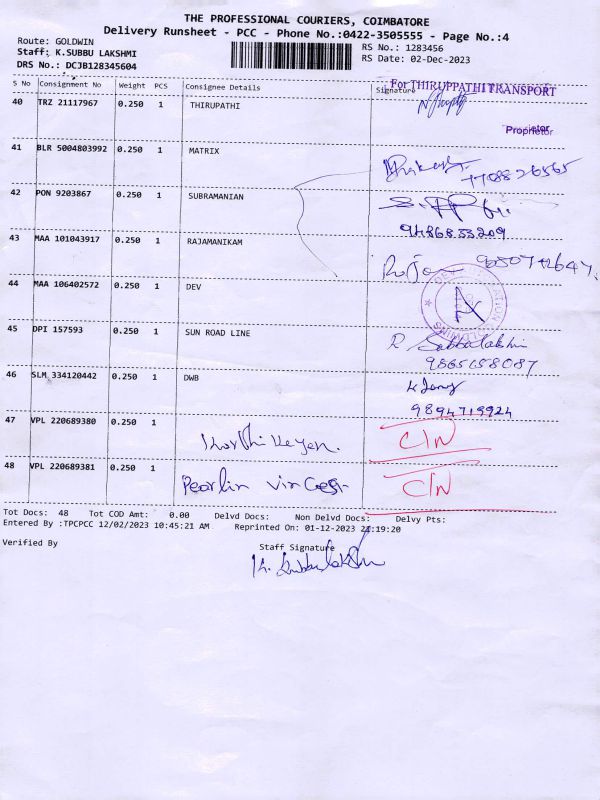 THE PROFESSIONAL COURIERS, COIMBATORE
Delivery Runsheet - PCC - Phone No.:0422-3505555 - Page No.:4
Route: GOLDWIN
Staff: K.SUBBU LAKSHMI
DRS No.: DCJB128345604
RS No.: 1283456
RS Date: 02-Dec-2023
S No Consignment No Weight PCS Consignee Details Signature
For THIRUPPATHI TRANSPORT
40 TRZ 21117967 0.250 1 THIRUPATHI
Proprietor
41 BLR 5004803992 0.250 1 MATRIX
7708826565
42 PON 9203867 0.250 1 SUBRAMANIAN
9486833209
43 MAA 101043917 0.250 1 RAJAMANIKAM
44 MAA 106402572 0.250 1 DEV
45 DPI 157593 0.250 1 SUN ROAD LINE
R. Subbulakshmi
9865158087
46 SLM 334120442 0.250 1 DWB
9894719924
47 VPL 220689380 0.250 1 Karthikeyan. C/N
48 VPL 220689381 0.250 1 Pearlin C/N
Tot Docs: 48 Tot COD Amt: 0.00 Delvd Docs: Non Delvd Docs: Delvy Pts:
Entered By :TPCPCC 12/02/2023 10:45:21 AM Reprinted On: 01-12-2023 21:19:20
Verified By
Staff Signature
K. Subbulakshmi